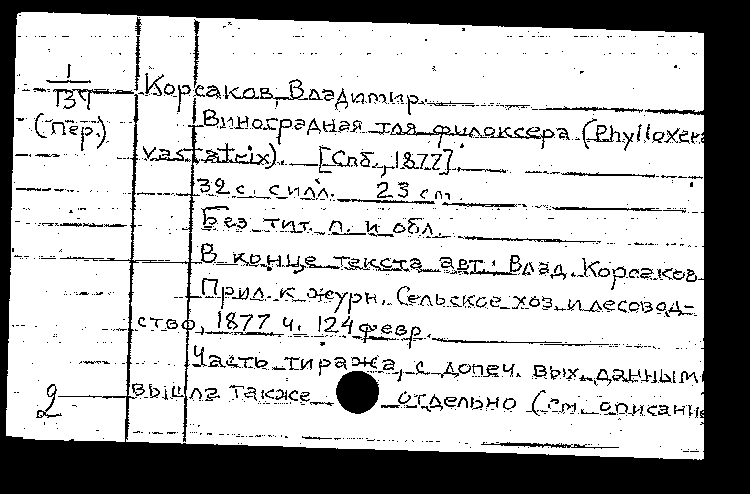 1/134 Корсаков, Владимир.
(пер.) Виноградная тля филоксера (Phylloxera
vastatrix). [Спб., 1877].
32 с. с илл. 23 см.
Без тит. л. и обл.
В конце текста авт.: Влад. Корсаков
Прил. к журн. Сельское хоз. и лесовод-
ство, 1877 ч. 124 февр.
Часть тиража, с допеч. вых. данными
2 вышла также отдельно (см. описание